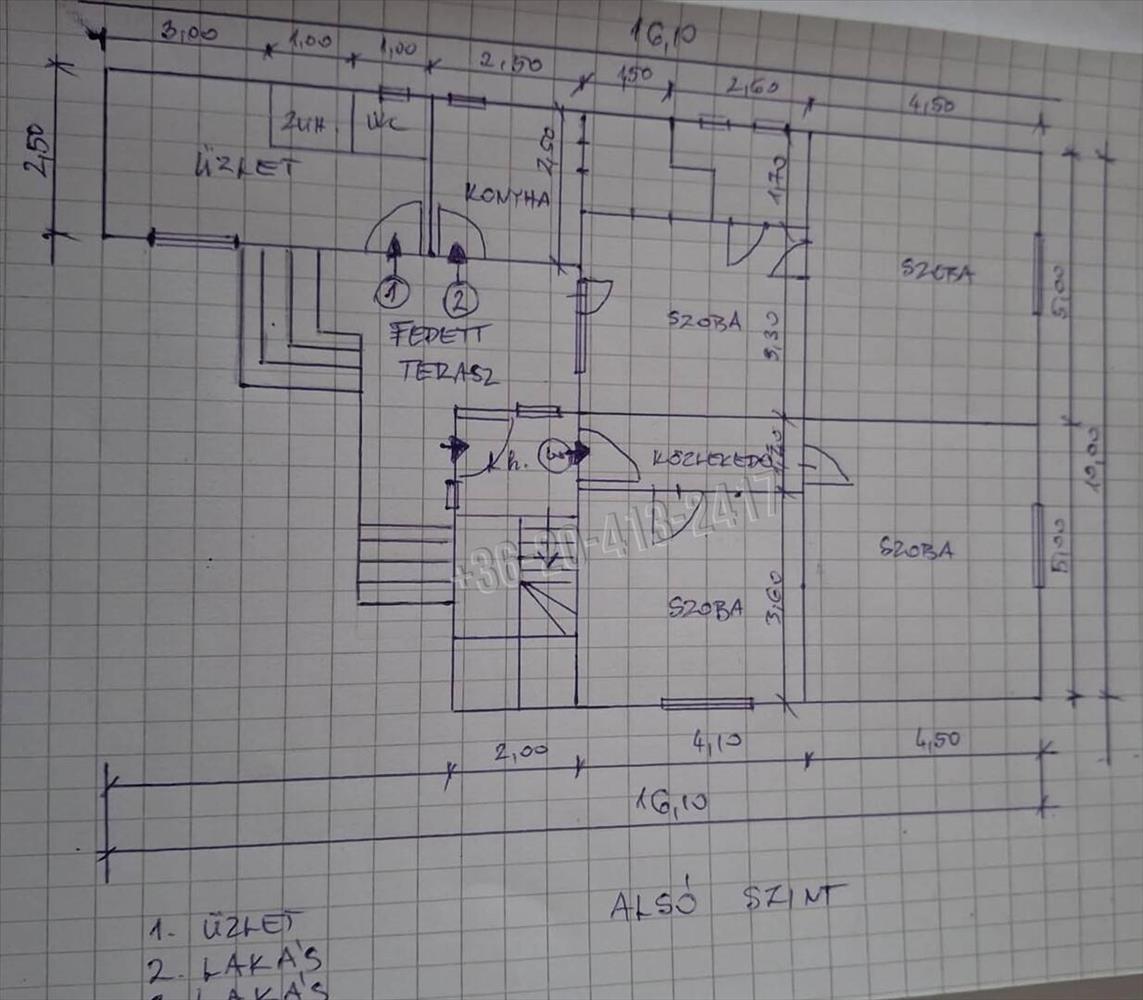 16,10
3,00 1,00 1,00 2,50 1,50 2,60 4,50
2,50
ZUH. WC
ÜZLET
KONYHA
2,50
1,70
SZOBA
5,00
1
2
FEDETT
TERASZ
SZOBA
3,30
Kh.
KÖZLEKEDŐ
1,20
10,00
+36-20-413-2417
SZOBA
5,00
SZOBA
3,60
2,00 4,10 4,50
16,10
ALSÓ SZINT
1. ÜZLET
2. LAKÁS
LAKÁS